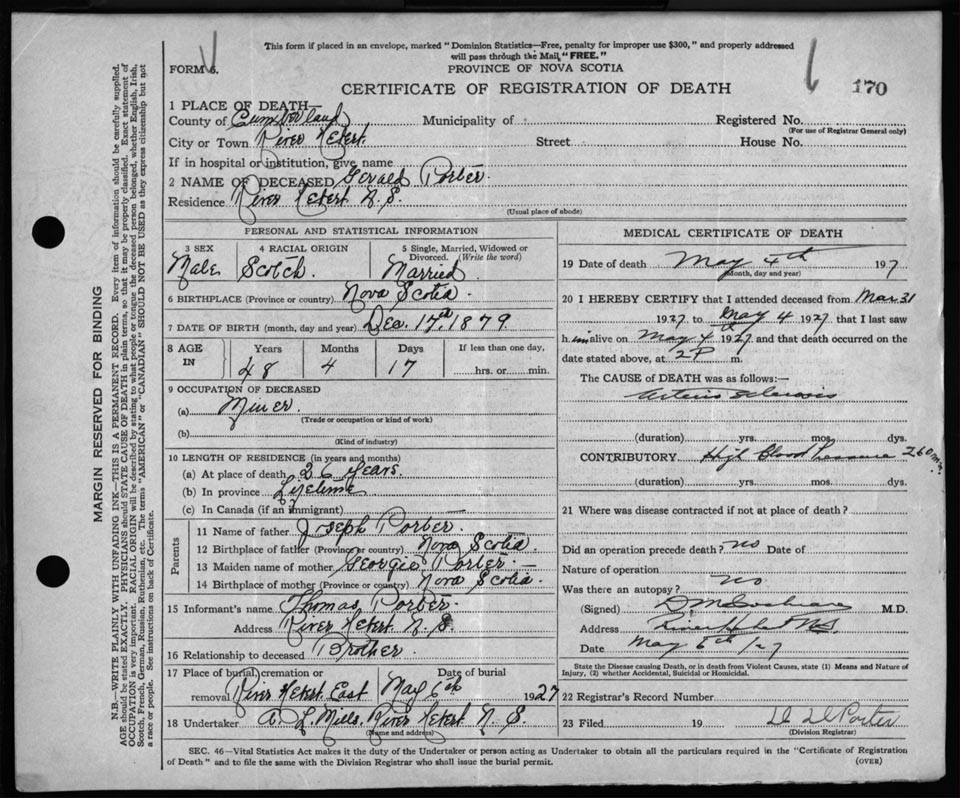 This form if placed in an envelope, marked "Dominion Statistics—Free, penalty for improper use $300," and properly addressed
will pass through the Mail, "FREE."
FORM 6.
PROVINCE OF NOVA SCOTIA
CERTIFICATE OF REGISTRATION OF DEATH
170
1 PLACE OF DEATH—
County of Cumberland Municipality of Registered No.
(For use of Registrar General only)
City or Town River Hebert. Street House No.
If in hospital or institution, give name
2 NAME OF DECEASED Gerald Porter.
Residence River Hebert N.S.
(Usual place of abode)
PERSONAL AND STATISTICAL INFORMATION
3 SEX 4 RACIAL ORIGIN 5 Single, Married, Widowed or
Divorced. (Write the word)
Male Scotch. Married
6 BIRTHPLACE (Province or country) Nova Scotia.
7 DATE OF BIRTH (month, day and year) Dec. 17th 1879
8 AGE IN Years Months Days If less than one day,
48 4 17 hrs. or min.
9 OCCUPATION OF DECEASED
(a) Miner.
(Trade or occupation or kind of work)
(b)
(Kind of industry)
10 LENGTH OF RESIDENCE (in years and months)
(a) At place of death 26 years.
(b) In province Lifetime
(c) In Canada (if an immigrant)
Parents
11 Name of father Joseph Porter.
12 Birthplace of father (Province or country) Nova Scotia.
13 Maiden name of mother Georgie Porter —
14 Birthplace of mother (Province or country) Nova Scotia.
15 Informant's name Thomas Porter.
Address River Hebert N.S.
16 Relationship to deceased Brother.
17 Place of burial, cremation or Date of burial
removal River Hebert East May 6th 1927
18 Undertaker A. L. Mills, River Hebert N.S.
(Name and address)
MEDICAL CERTIFICATE OF DEATH
19 Date of death May 4th 1927
(Month, day and year)
20 I HEREBY CERTIFY that I attended deceased from Mar 31
1927 to May 4 1927 that I last saw
him alive on May 4th 1927 and that death occurred on the
date stated above, at 2 P m.
The CAUSE OF DEATH was as follows:—
Arterio sclerosis
(duration) yrs. mos. dys.
CONTRIBUTORY High Blood Pressure 260
(duration) yrs. mos. dys.
21 Where was disease contracted if not at place of death?
Did an operation precede death? no Date of
Nature of operation
Was there an autopsy? no
(Signed) M.D.
Address River Hebert NS
Date May 6th/27
State the Disease causing Death, or in death from Violent Causes, state (1) Means and Nature of
Injury, (2) whether Accidental, Suicidal or Homicidal.
22 Registrar's Record Number
23 Filed 19 Porter
(Division Registrar)
SEC. 46—Vital Statistics Act makes it the duty of the Undertaker or person acting as Undertaker to obtain all the particulars required in the "Certificate of Registration
of Death" and to file the same with the Division Registrar who shall issue the burial permit. (OVER)
MARGIN RESERVED FOR BINDING
N.B.—WRITE PLAINLY WITH UNFADING INK—THIS IS A PERMANENT RECORD. Every item of information should be carefully supplied.
AGE should be stated EXACTLY. PHYSICIANS should STATE CAUSE OF DEATH in plain terms, so that it may be properly classified. Exact statement of
OCCUPATION is very important. RACIAL ORIGIN will be described by stating to what people or tongue the deceased person belonged, whether English, Irish,
Scotch, French, German, Russian, Ruthenian, etc. The terms "AMERICAN" or "CANADIAN" SHOULD NOT BE USED as they express citizenship but not
a race or people. See instructions on back of Certificate.